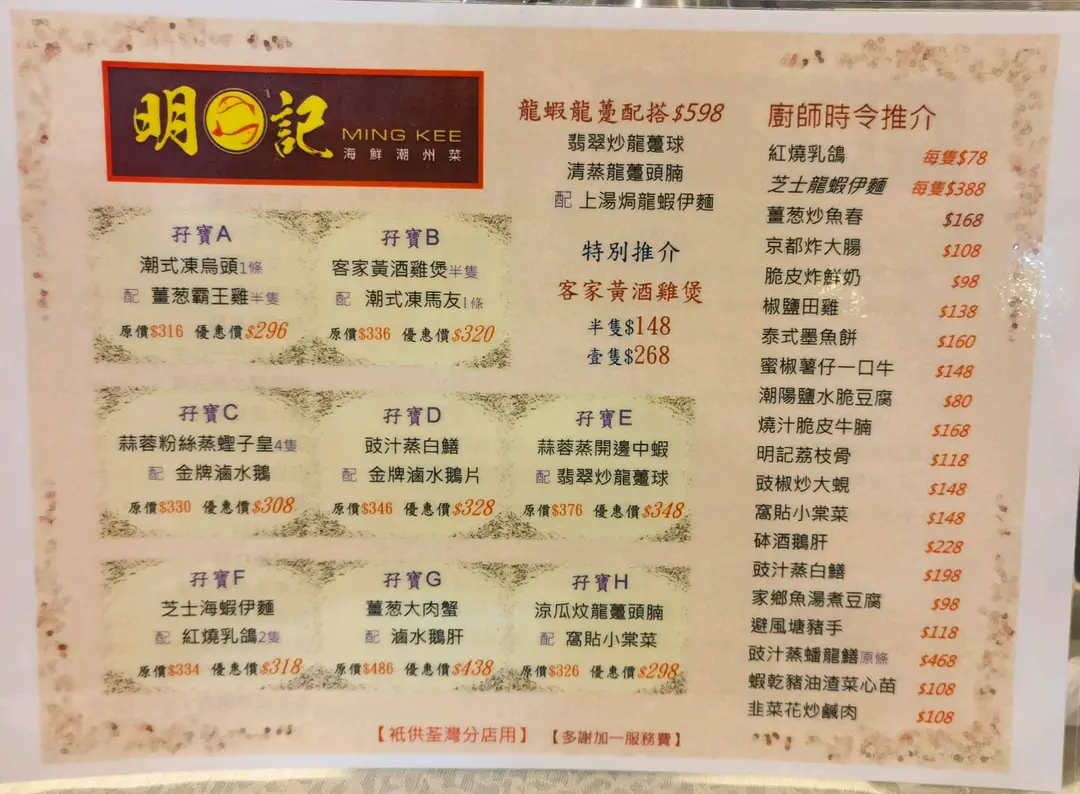 明記
MING KEE
海鮮潮州菜
龍蝦龍躉配搭$598
翡翠炒龍躉球
清蒸龍躉頭腩
配 上湯焗龍蝦伊麵
特別推介
客家黃酒雞煲
半隻$148
壹隻$268
孖寶A
潮式凍烏頭1條
配 薑葱霸王雞半隻
原價$316 優惠價$296
孖寶B
客家黃酒雞煲半隻
配 潮式凍馬友1條
原價$336 優惠價$320
孖寶C
蒜蓉粉絲蒸蟶子皇4隻
配 金牌滷水鵝
原價$330 優惠價$308
孖寶D
豉汁蒸白鱔
配 金牌滷水鵝片
原價$346 優惠價$328
孖寶E
蒜蓉蒸開邊中蝦
配 翡翠炒龍躉球
原價$376 優惠價$348
孖寶F
芝士海蝦伊麵
配 紅燒乳鴿2隻
原價$334 優惠價$318
孖寶G
薑葱大肉蟹
配 滷水鵝肝
原價$486 優惠價$438
孖寶H
涼瓜炆龍躉頭腩
配 窩貼小棠菜
原價$326 優惠價$298
廚師時令推介
紅燒乳鴿 每隻$78
芝士龍蝦伊麵 每隻$388
薑葱炒魚春 $168
京都炸大腸 $108
脆皮炸鮮奶 $98
椒鹽田雞 $138
泰式墨魚餅 $160
蜜椒薯仔一口牛 $148
潮陽鹽水脆豆腐 $80
燒汁脆皮牛腩 $168
明記荔枝骨 $118
豉椒炒大蜆 $148
窩貼小棠菜 $148
砵酒鵝肝 $228
豉汁蒸白鱔 $198
家鄉魚湯煮豆腐 $98
避風塘豬手 $118
豉汁蒸蟠龍鱔原條 $468
蝦乾豬油渣菜心苗 $108
韭菜花炒鹹肉 $108
【祇供荃灣分店用】 【多謝加一服務費】